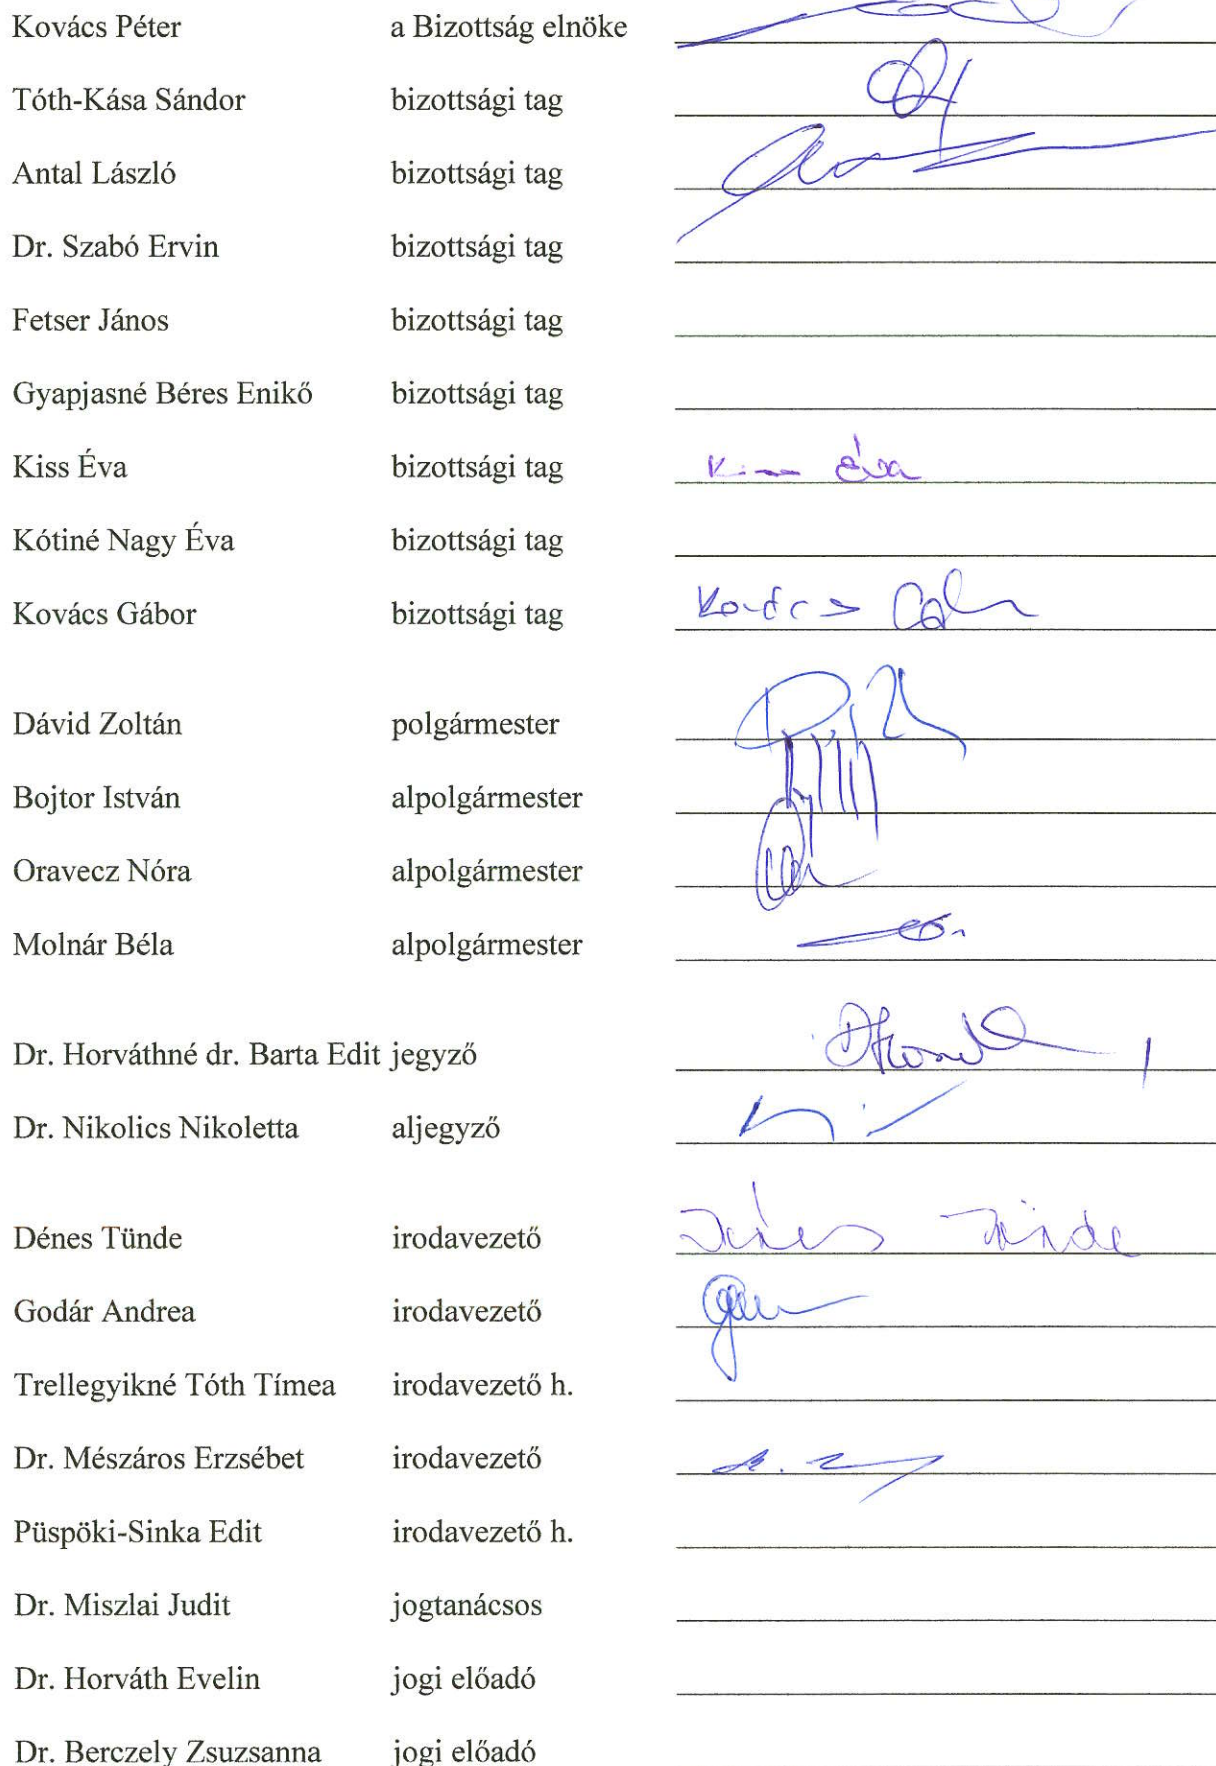 Kovács Péter a Bizottság elnöke
Tóth-Kása Sándor bizottsági tag
Antal László bizottsági tag
Dr. Szabó Ervin bizottsági tag
Fetser János bizottsági tag
Gyapjasné Béres Enikő bizottsági tag
Kiss Éva bizottsági tag Kiss Éva
Kótiné Nagy Éva bizottsági tag
Kovács Gábor bizottsági tag Kovács Gábor
Dávid Zoltán polgármester
Bojtor István alpolgármester
Oravecz Nóra alpolgármester
Molnár Béla alpolgármester
Dr. Horváthné dr. Barta Edit jegyző
Dr. Nikolics Nikoletta aljegyző
Dénes Tünde irodavezető Dénes Tünde
Godár Andrea irodavezető
Trellegyikné Tóth Tímea irodavezető h.
Dr. Mészáros Erzsébet irodavezető
Püspöki-Sinka Edit irodavezető h.
Dr. Miszlai Judit jogtanácsos
Dr. Horváth Evelin jogi előadó
Dr. Berczely Zsuzsanna jogi előadó